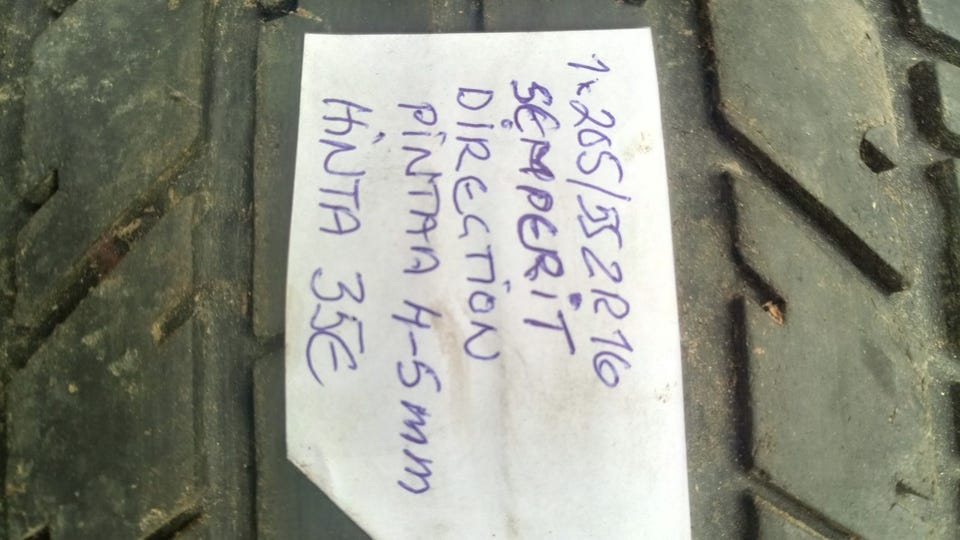 1x205/55ZR16
SEMPERIT
DIRECTION
PINTAA 4-5mm
HINTA 35E